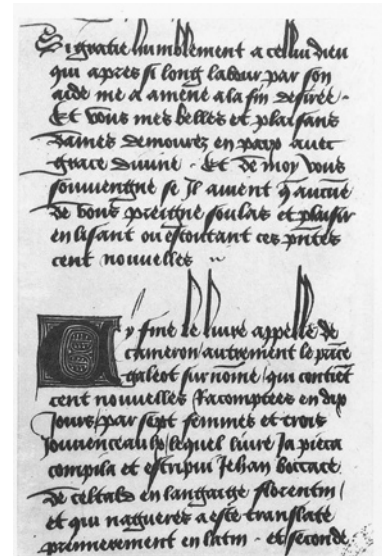 Si gratie humblement a cellui dieu
qui apres si long labeur par son
aide me a amene a la fin desiree ·
Et vous mes belles et plaisans
dames demourez en paix avec
grace divine · Et de moy vous
souviengne se il avient q̃ aucũe
de vous preigne soulas et plaisir
en lisant ou escoutant ces p̃ntes
cent nouvelles
Cy fine le livre appelle de
cameron autrement le prĩce
galeot surnõme qui contiẽt
cent nouvelles racomptees en dix
Jours par sept femmes et trois
Jouvenceaulx lequel livre ja pieca
compila et escripvi Jehan boccace
de certald en langaige florentin /
et qui nagueres a este translate
premierement en latin · et seconde